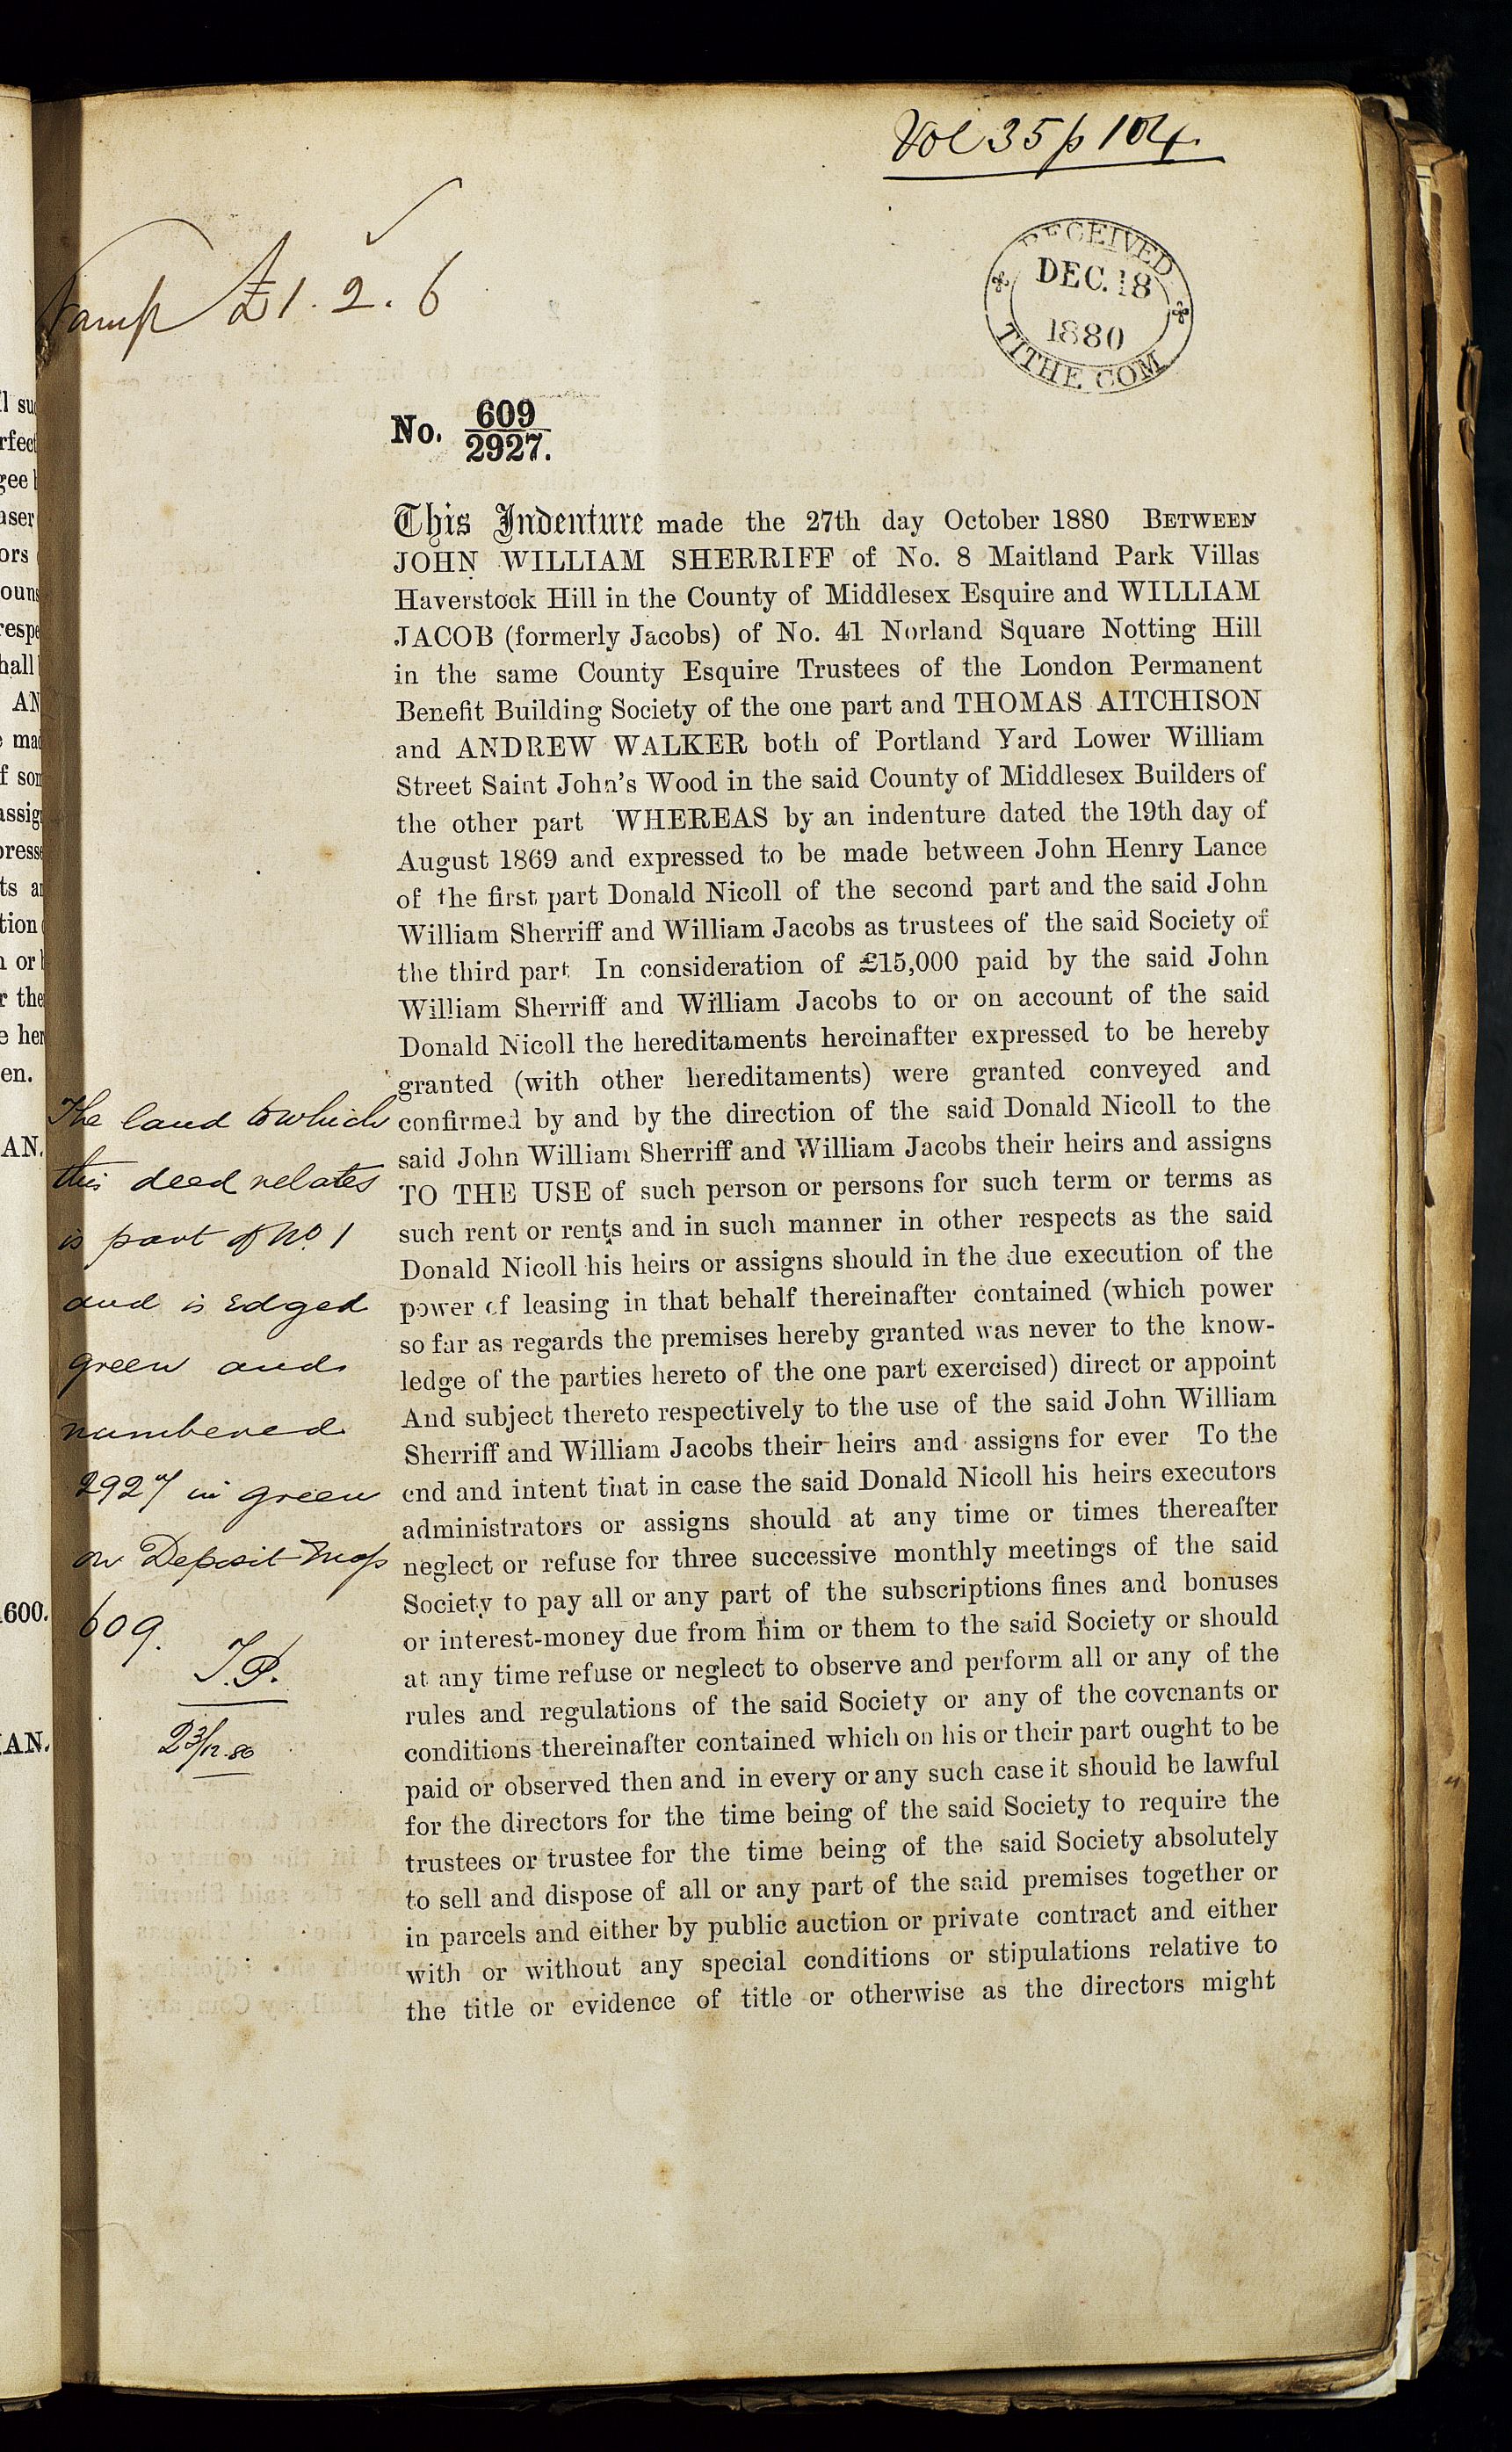 Vol 35 p 104.
Stamp £1.2.6
RECEIVED
DEC. 18
1880
TITHE COM
No. 609
2927.
This Indenture made the 27th day October 1880 BETWEEN
JOHN WILLIAM SHERRIFF of No. 8 Maitland Park Villas
Haverstock Hill in the County of Middlesex Esquire and WILLIAM
JACOB (formerly Jacobs) of No. 41 Norland Square Notting Hill
in the same County Esquire Trustees of the London Permanent
Benefit Building Society of the one part and THOMAS AITCHISON
and ANDREW WALKER both of Portland Yard Lower William
Street Saint John's Wood in the said County of Middlesex Builders of
the other part WHEREAS by an indenture dated the 19th day of
August 1869 and expressed to be made between John Henry Lance
of the first part Donald Nicoll of the second part and the said John
William Sherriff and William Jacobs as trustees of the said Society of
the third part In consideration of £15,000 paid by the said John
William Sherriff and William Jacobs to or on account of the said
Donald Nicoll the hereditaments hereinafter expressed to be hereby
granted (with other hereditaments) were granted conveyed and
confirmed by and by the direction of the said Donald Nicoll to the
said John William Sherriff and William Jacobs their heirs and assigns
TO THE USE of such person or persons for such term or terms as
such rent or rents and in such manner in other respects as the said
Donald Nicoll his heirs or assigns should in the due execution of the
power of leasing in that behalf thereinafter contained (which power
so far as regards the premises hereby granted was never to the know-
ledge of the parties hereto of the one part exercised) direct or appoint
And subject thereto respectively to the use of the said John William
Sherriff and William Jacobs their heirs and assigns for ever To the
end and intent that in case the said Donald Nicoll his heirs executors
administrators or assigns should at any time or times thereafter
neglect or refuse for three successive monthly meetings of the said
Society to pay all or any part of the subscriptions fines and bonuses
or interest-money due from him or them to the said Society or should
at any time refuse or neglect to observe and perform all or any of the
rules and regulations of the said Society or any of the covenants or
conditions thereinafter contained which on his or their part ought to be
paid or observed then and in every or any such case it should be lawful
for the directors for the time being of the said Society to require the
trustees or trustee for the time being of the said Society absolutely
to sell and dispose of all or any part of the said premises together or
in parcels and either by public auction or private contract and either
with or without any special conditions or stipulations relative to
the title or evidence of title or otherwise as the directors might
The land to which
this deed relates
is part of No. 1
and is edged
green and
numbered
2927 in green
on Deposit Map
609.
J.P.
23/12.80